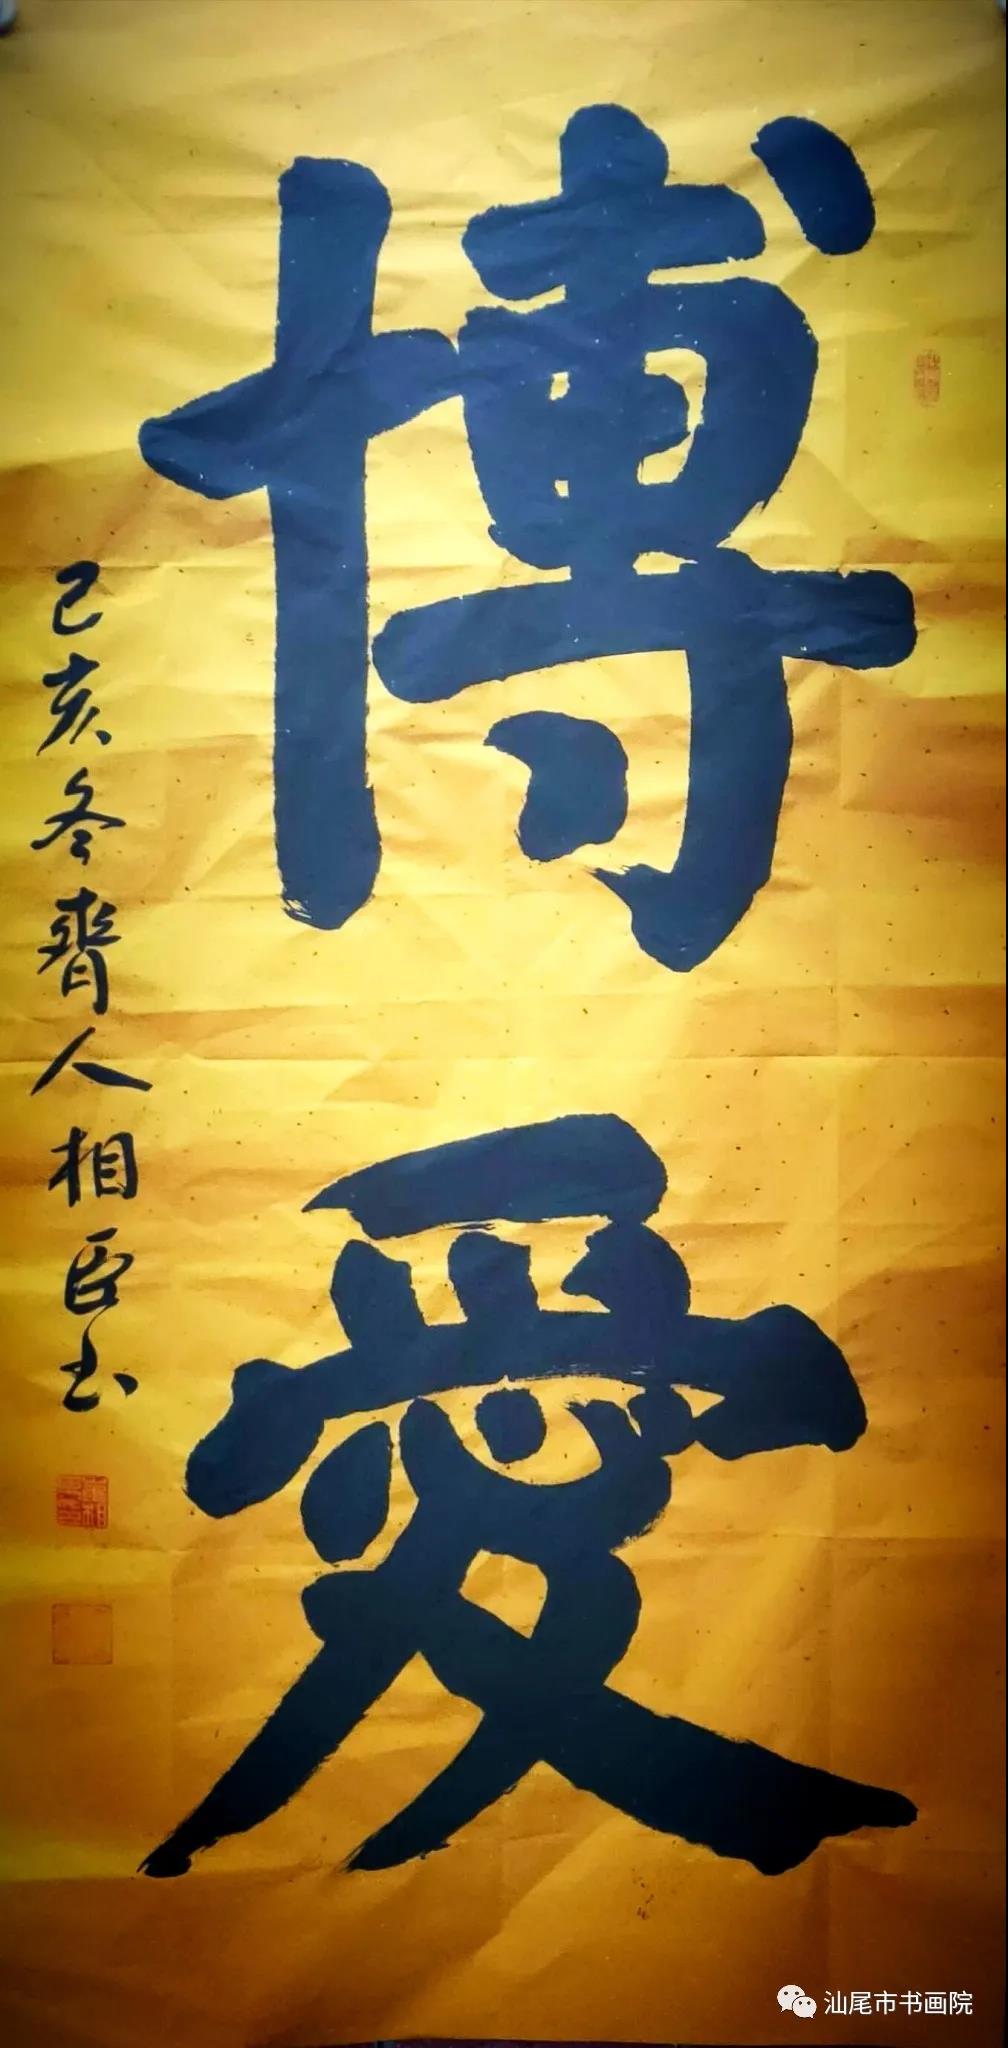 博愛
己亥冬齊人相臣书
汕尾市书画院